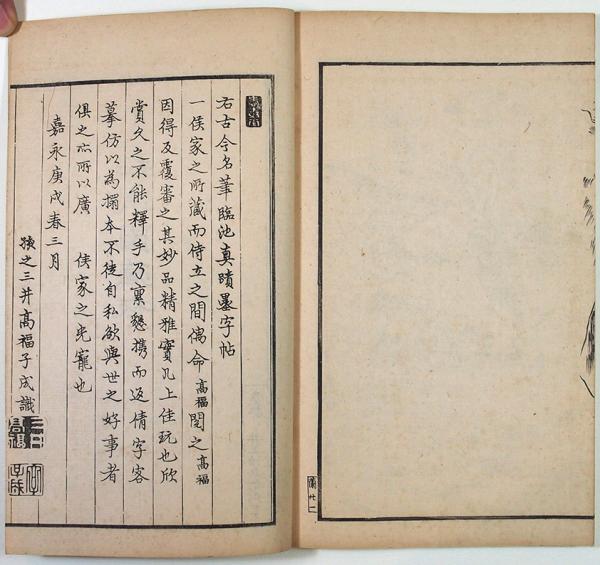 右古今名筆臨池真蹟墨字帖
一侯家之所蔵而侍立之間偶命高福閲之高福
因得反覆審之其妙品精雅寶几上佳玩也欣
賞久之不能釋手乃稟懇携而返倩字客
摹仿以為搨本不徒自私欲與世之好事者
俱之亦所以廣 侯家之光寵也
嘉永庚戌春三月
三井高福子成識